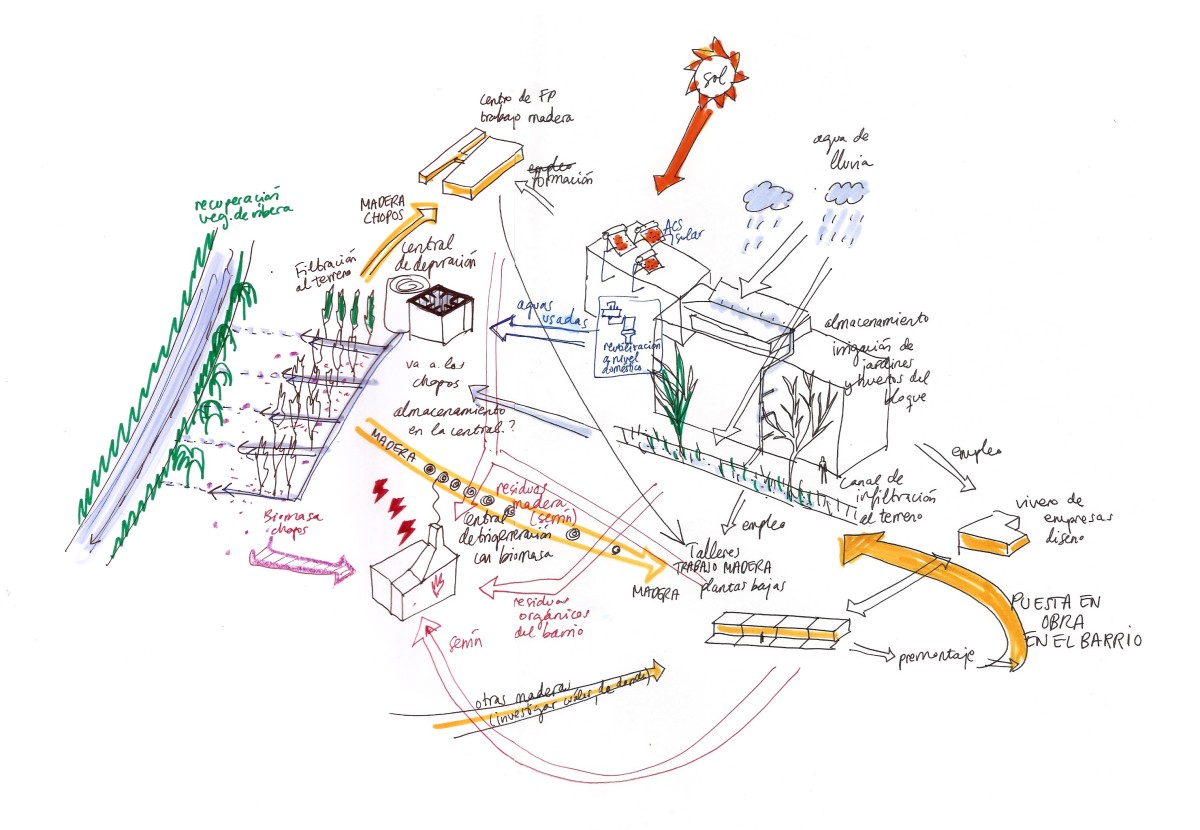 sol
centro de FP
trabajo madera
empleo
formación
agua de
lluvia
recuperación
veg. de ribera
MADERA
CHOPOS
Filtración
al terreno
Central
de depuración
ACS
solar
aguas
usadas
reutilización
a nivel
doméstico
almacenamiento
irrigación de
jardines
y huertos del
bloque
va a los
chopos
almacenamiento
en la central?
MADERA
residuos
madera
(serrín)
Central
de biogeneración
con biomasa
Biomasa
chopos
Canal de
infiltración
al terreno
empleo
vivero de
empresas
diseño
empleo
Talleres
TRABAJO MADERA
plantas bajas
MADERA
residuos
orgánicos
del barrio
serrín
PUESTA EN
OBRA
EN EL BARRIO
premontaje
otras maderas
(investigar cuáles, de dónde)